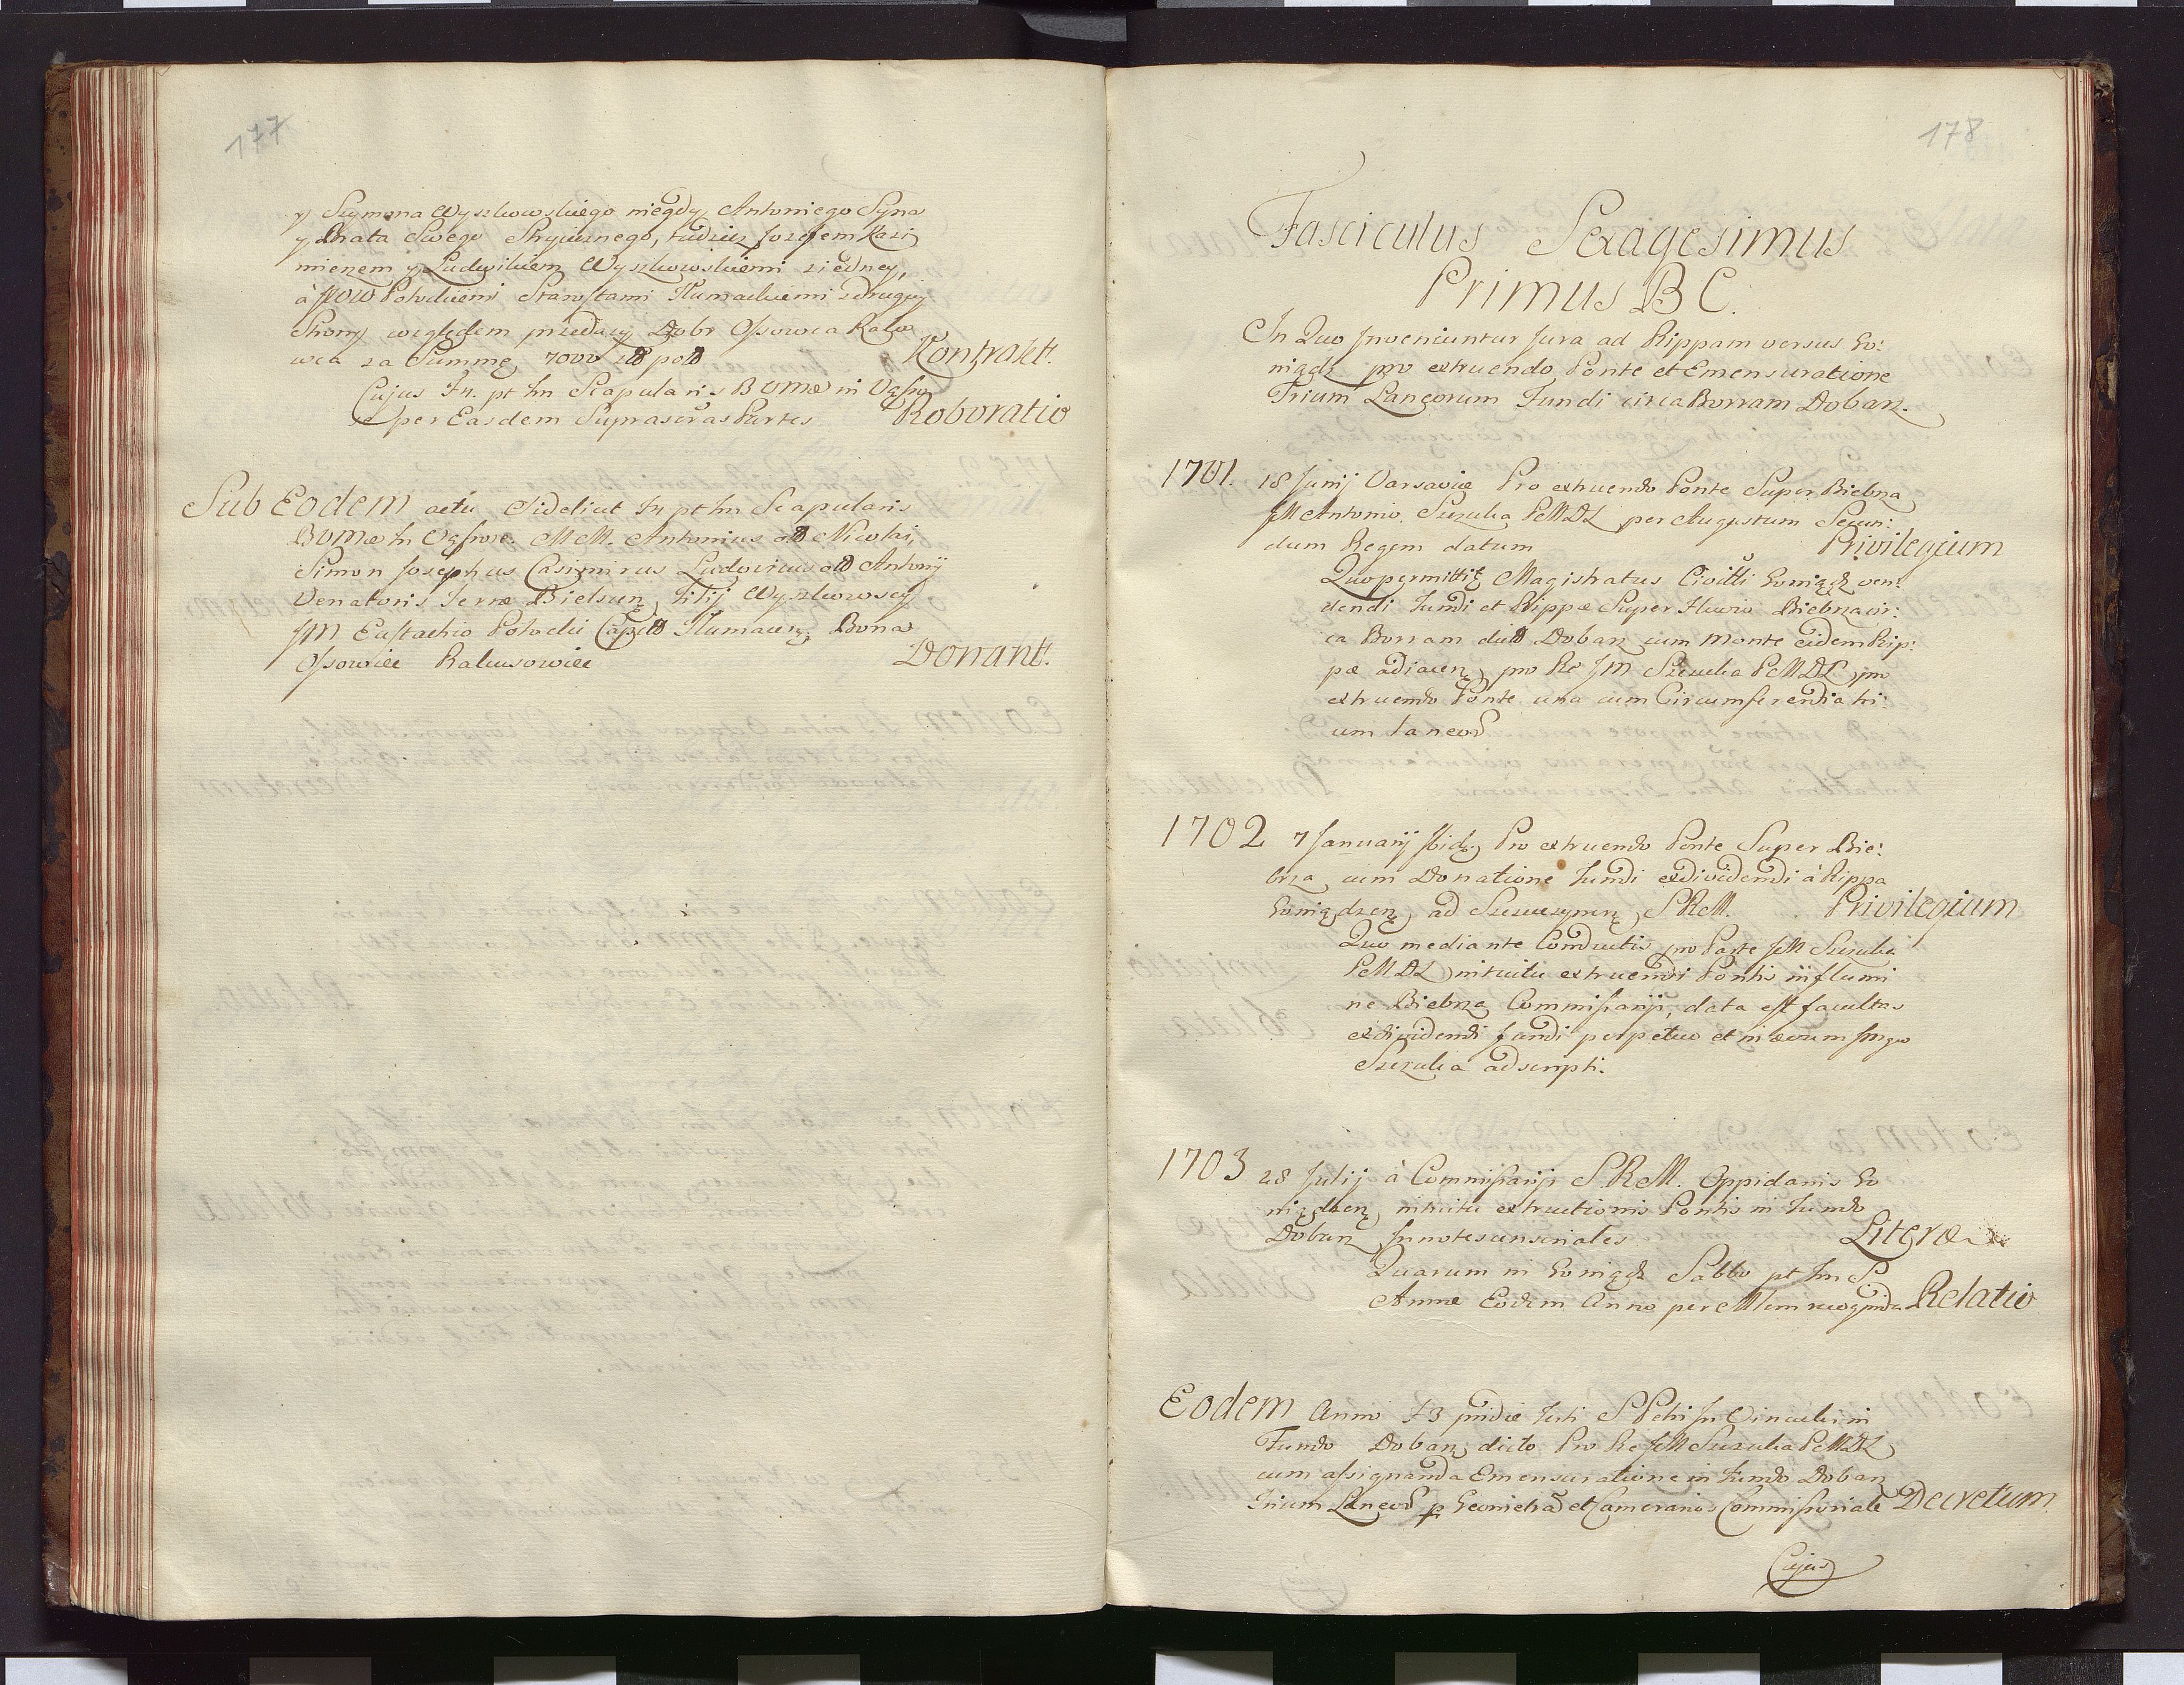 177
y Szymona Wyszkowskiego niegdy Antoniego Syna
y Brata Swego Stryiecznego, tudziesz Jozefem Kazi
mierzem y Ludwikiem Wyszkowskiemi z iedney,
à JWW Potockiemi Starostami Tłumackiemi z drugiey
Strony względem przedazy Dobr Ossowca Kału
wca za Summę 7000 zło pol Kontrakt.
Cujus Fr. pt fm Scapularis BVMæ in Ogsno
per Easdem Suprascras Partes Roboratio
Sub Eodem actu Videlicet Fr pt fm Scapularis
BVMæ In MM. Antonius olo Nicolai,
Simon Josephus Casimirus Ludovicus olo Antonij
Venatoris Terræ Bielscen Filij Wyszkowscy
JM Eustachio Potocki Capit Tłumacen Bona
Ossowiec Donant.
178
Fasciculus Sexagesimus
Primus B C.
In Quo Inveniuntur Jura ad Rippam versus Go:
niądz pro extruendo Ponte et Emensuratione
Trium Laneorum Fundi circa Borram Dobarz.
1701. 18 Junij Varsaviæ Pro extruendo Ponte Super Biebrza
JM Antonio Szczuka PcMDL per Augustum Secun:
dum Regem datum Privilegium
Quo permittit Magistratus Civitti Goniądz ven:
dendi Fundi et Rippæ Super Fluvio Biebrza cir:
ca Borram dicto Dobarz cum Monte eidem Rip:
pæ adiacen pro Re JM Szczuka PcMDL pro
extruendo Ponte una cum Circumferendia tri:
um laneor
1702 7 Januarij Ibid. Pro extruendo Ponte Super Bie:
brza cum Donatione Fundi exdividendi à Rippa
Goniądzen ad Szczuczynen S.R.M. Privilegium
Quo mediante Conductis pro Parte JM Szczuka
PcMDL intuitu extruendi Pontis in flumi
ne Biebrza Commissarijs, data est facultas
exdividendi fundi perpetuo et in ævum
Szczuka adscripti.
1703 28 Julij à Commissarijs S.R.M. Oppidanis Go
niądzen intuitu extructionis Pontis in Fundo
Dobarz Innotescensiales Literæ
Quarum in Goniądz Sabbo pt fm S
Annæ Eodem Anno per Mlem recognita Relatio
Eodem Anno F 3 pridie Festi S Petri In Vinculis in
Fundo Dobarz dicto Pro Re JM Szczuka PcMDL
cum assignanda Emensuratione in Fundo Dobarz
Trium Laneor p Geometra et Camerarios Commissoriale Decretum
Cujus